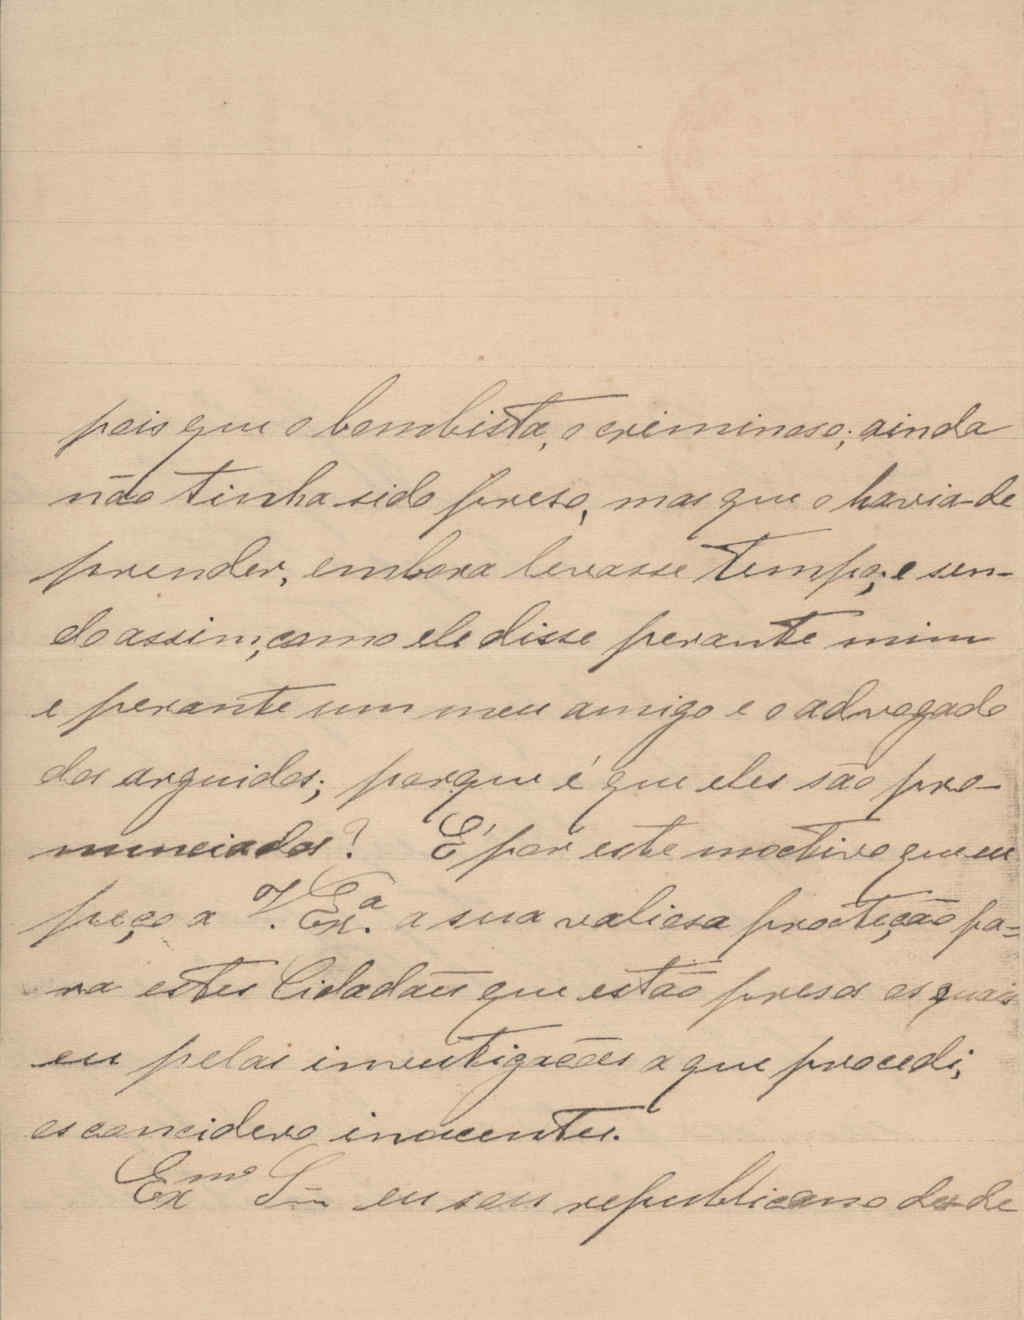 pois que o bombista, o criminoso; ainda
não tinha sido preso, mas que o havia de
prender, embora levasse tempo, e sen-
do assim, como ele disse perante mim
e perante um meu amigo e o advogado
dos arguidos; porque é que eles são pro-
nunciados? É por este moctivo que eu
peço a V. Ex.ª a sua valiosa proteção pa=
ra estes Cidadãus que estão presos os quais
eu pelas investigações a que procedi,
os concidero inocentes.
Exmo Snr eu sou republicano desde